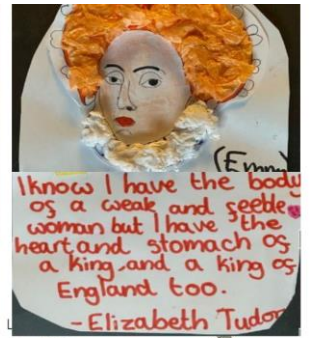 (Emmy)
I know I have the body
of a weak and feeble
woman but I have the
heart and stomach of
a king and a king of
England too.
- Elizabeth Tudor